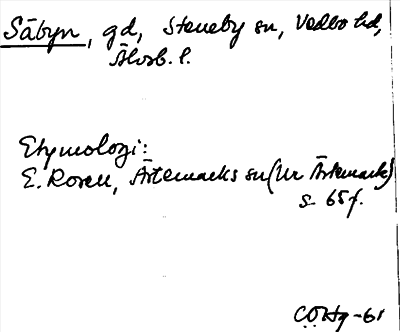 Säbyn, gd, Steneby sn, Vedbo hd,
Älvsb. l.
Etymologi:
E. Rosell, Ärtemarks sn (Ur Ärtemark)
s 65f.
CÖHg-61